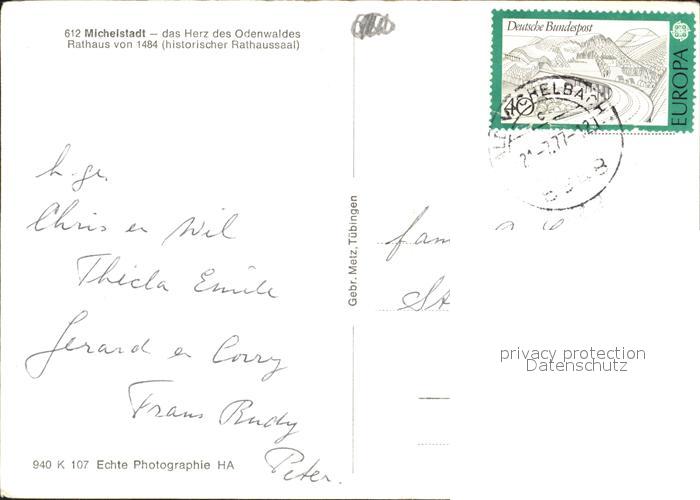 612 Michelstadt – das Herz des Odenwaldes
Rathaus von 1484 (historischer Rathaussaal)
Deutsche Bundespost
EUROPA
HELBACH
21-7.77-12
h.gr.
Chris en Wil
Thecla Emile
Gerard en Corry
Frans Rudy
Peter.
fam
St
Gebr. Metz, Tübingen
privacy protection
Datenschutz
940 K 107 Echte Photographie HA